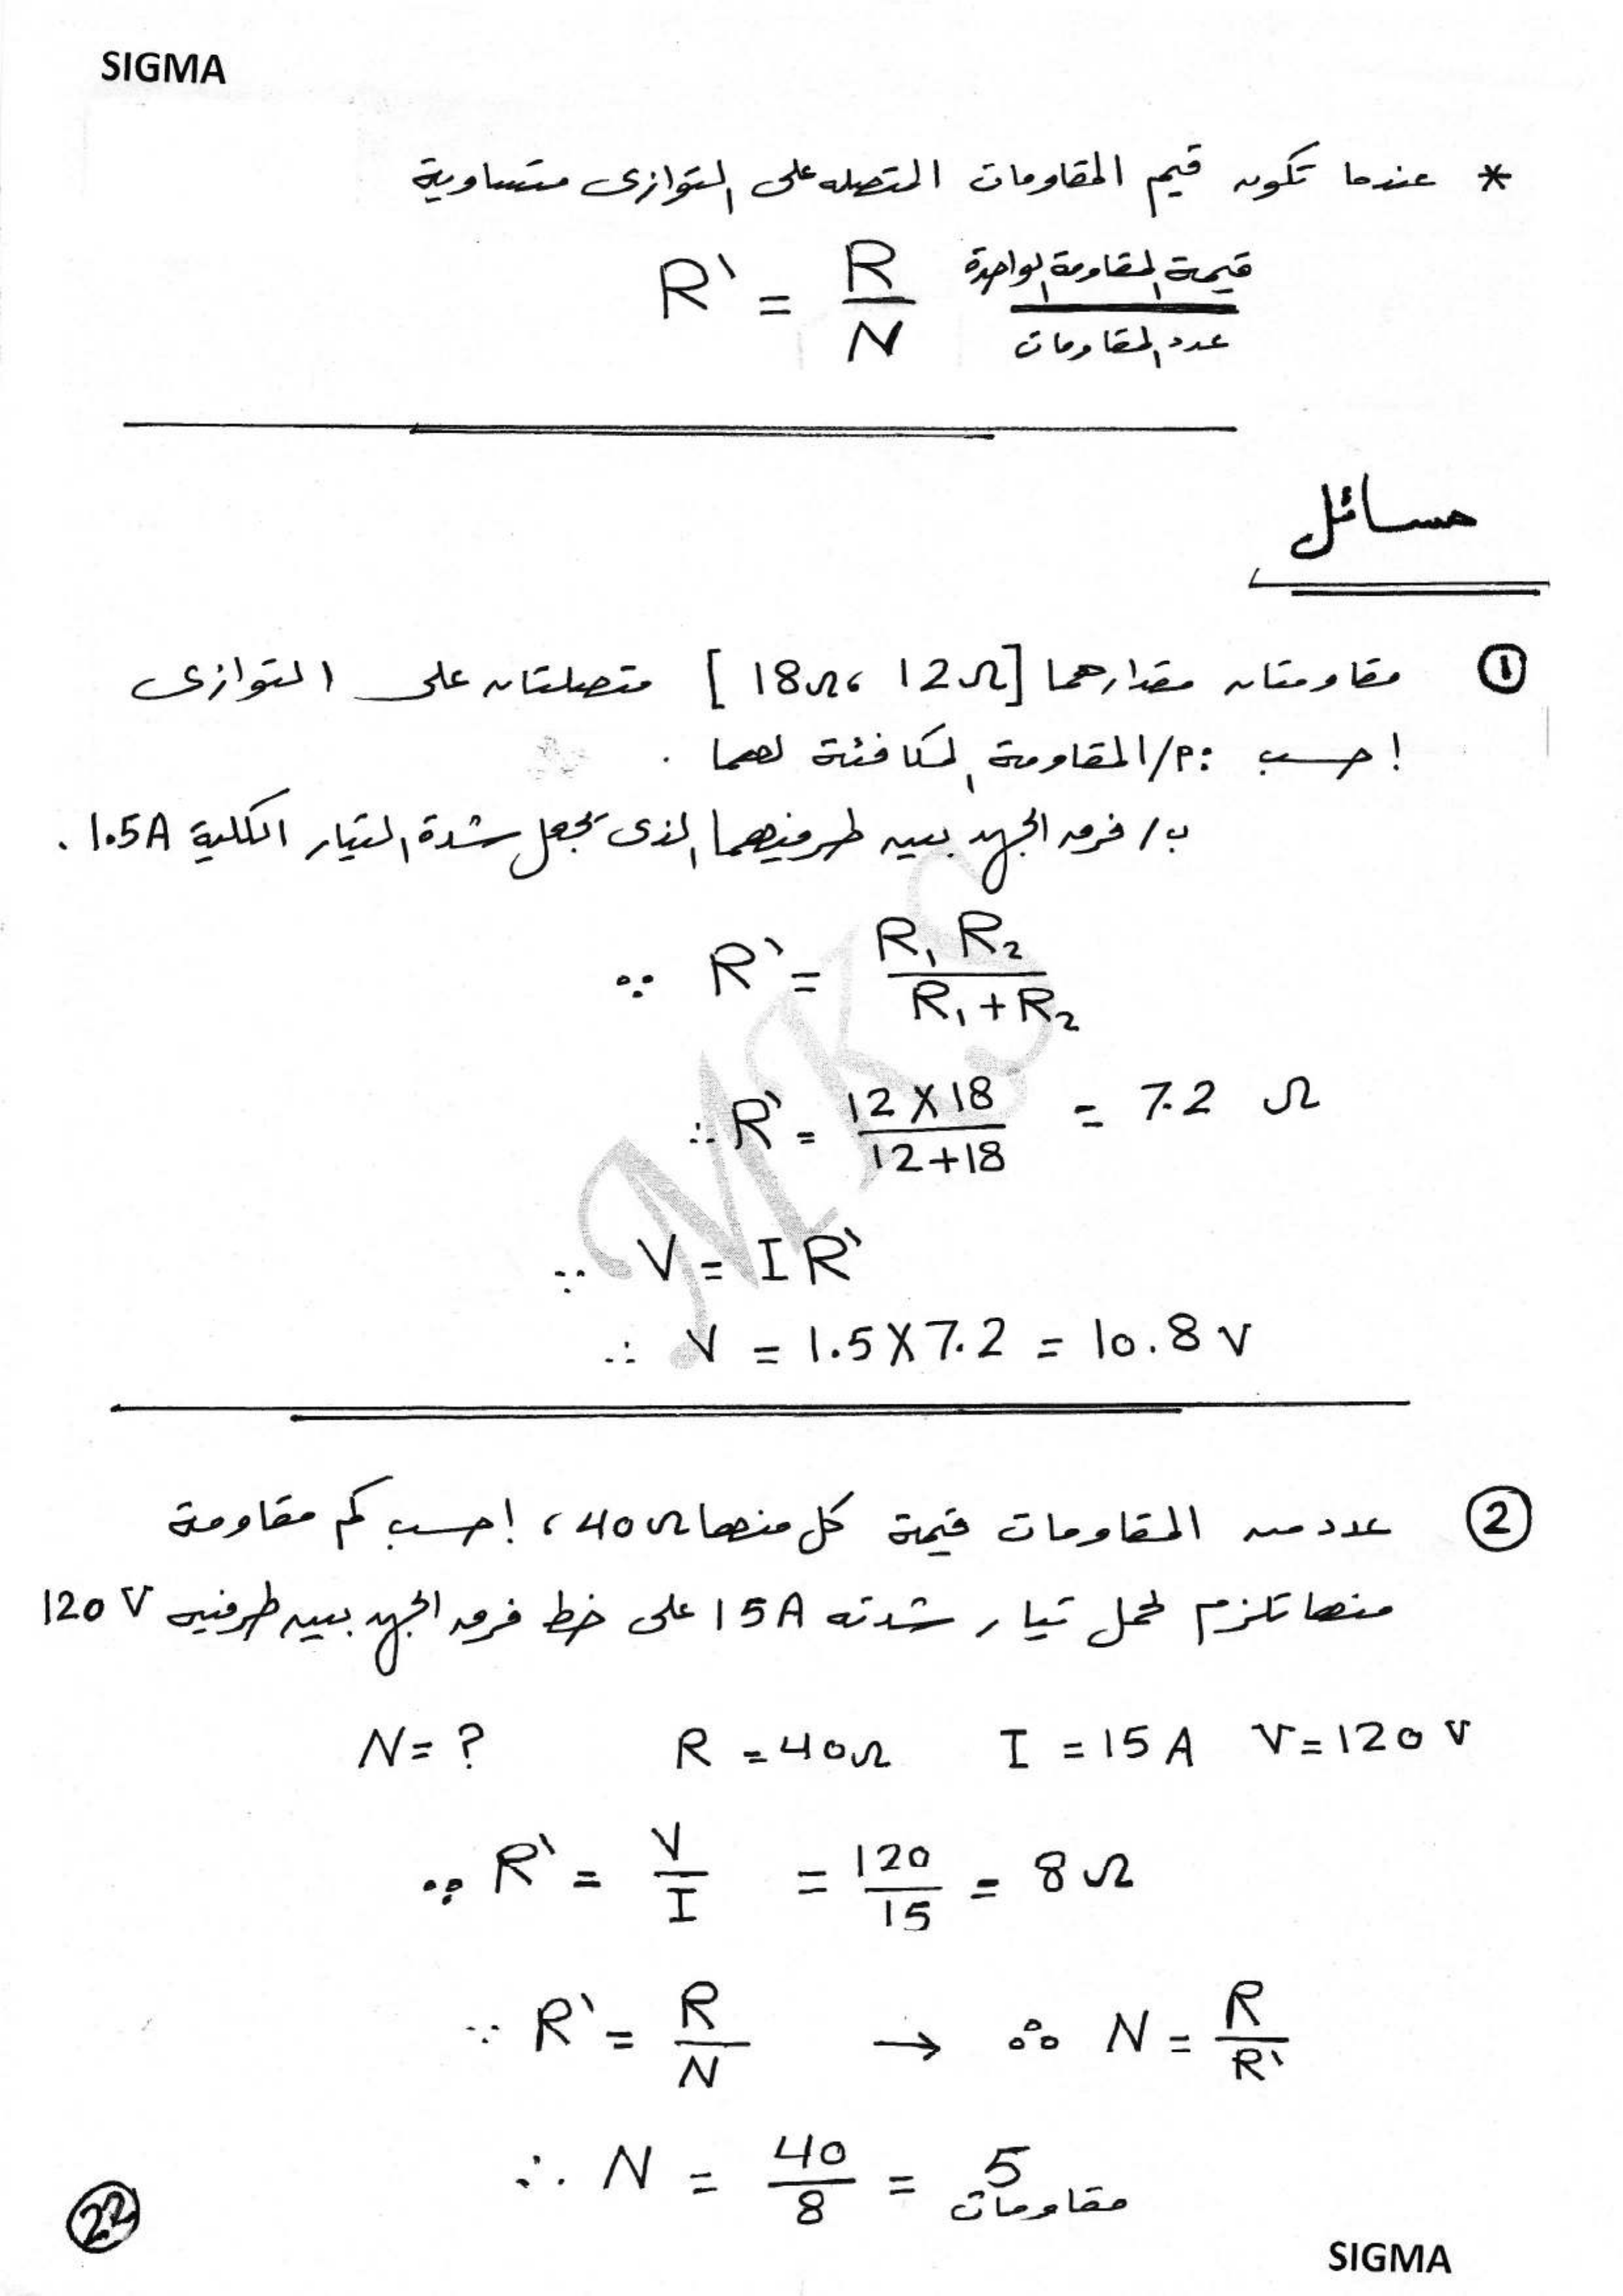 SIGMA
* عندما تكون قيم المقاومات المتصله على التوازى متساوية
R` = R / N قيمة المقاومة الواحدة / عدد المقاومات
مسائل
① مقاومتان مقدارهما [18Ω، 12Ω] متصلتان على التوازى
احسب : م/ المقاومة المكافئة لهما .
ب/ فرق الجهد بين طرفيهما الذى يجعل شدة التيار الكلية 1.5A .
∵ R` = R₁ R₂ / R₁ + R₂
∴ R` = 12 X 18 / 12+18 = 7.2 Ω
∵ V = I R`
∴ V = 1.5 X 7.2 = 10.8 V
② عدد من المقاومات قيمة كل منها 40Ω، احسب كم مقاومة
منها تلزم لحمل تيار شدته 15A على خط فرق الجهد بين طرفيه 120 V
N = ? R = 40Ω I = 15 A V = 120 V
∵ R` = V / I = 120 / 15 = 8 Ω
∵ R` = R / N → ∴ N = R / R`
∴ N = 40 / 8 = 5 مقاومات
22
SIGMA
MKS